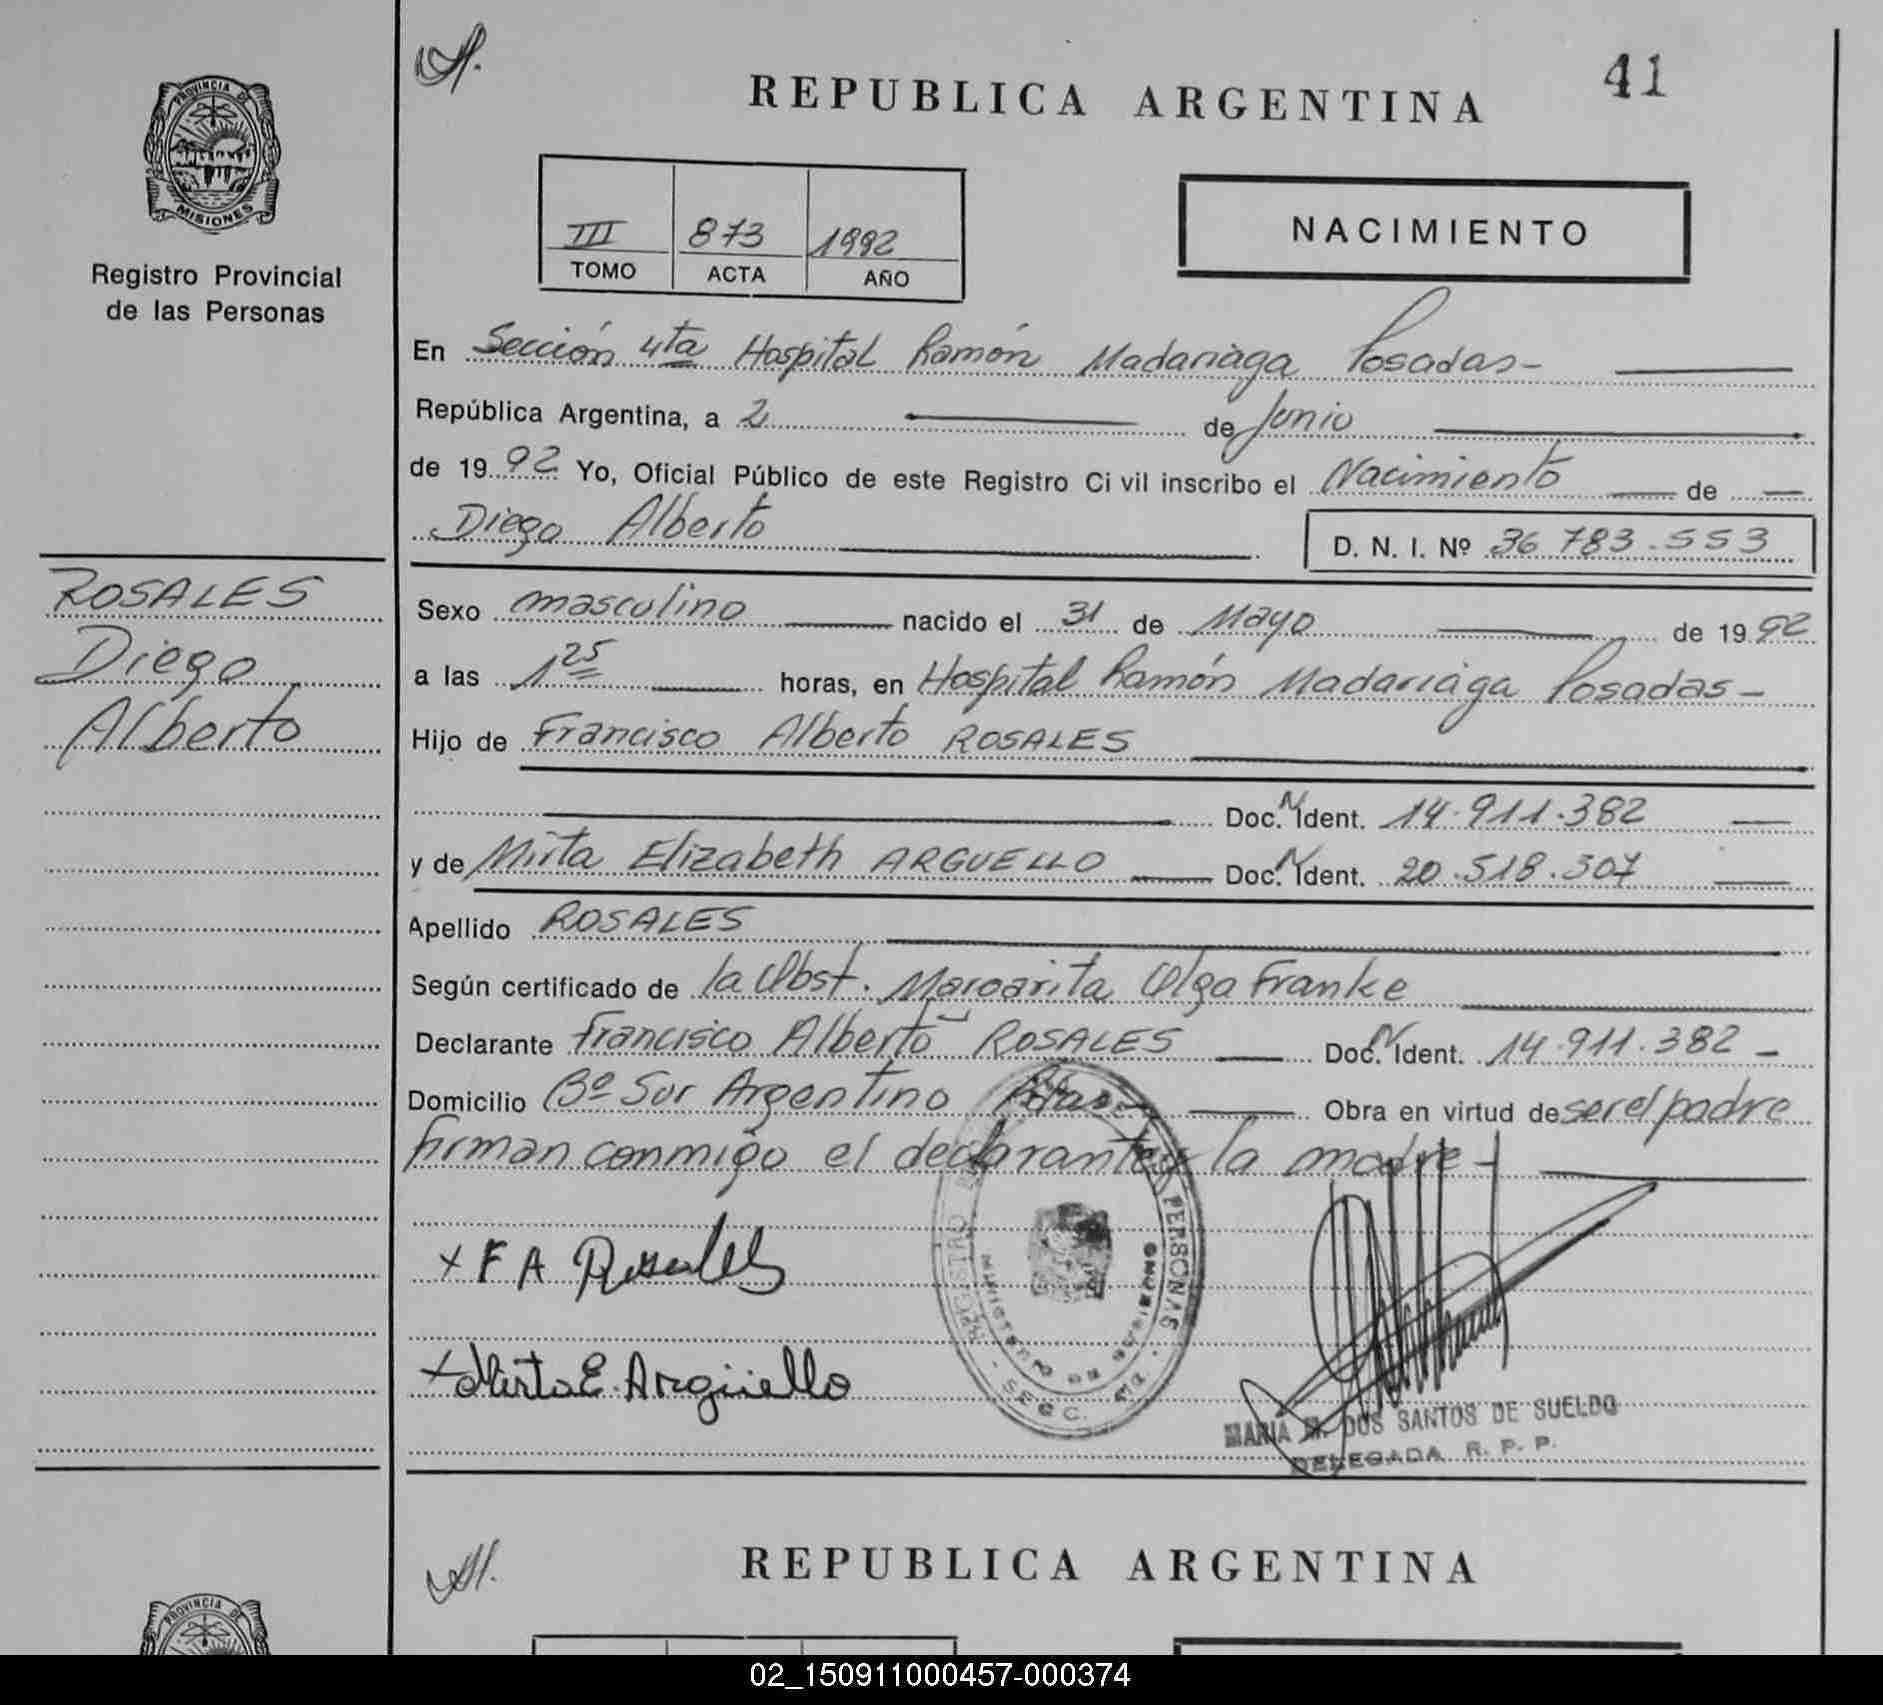 41
REPUBLICA ARGENTINA
PROVINCIA DE
MISIONES
Registro Provincial
de las Personas
III 873 1992
TOMO ACTA AÑO
NACIMIENTO
En Sección 4ta Hospital Ramón Madariaga Posadas-
República Argentina, a 2 de Junio
de 1992 Yo, Oficial Público de este Registro Civil inscribo el Nacimiento de
Diego Alberto D. N. I. Nº 36 783.553
ROSALES
Diego
Alberto
Sexo masculino nacido el 31 de Mayo de 1992
a las 1 25 horas, en Hospital Ramón Madariaga Posadas-
Hijo de Francisco Alberto ROSALES
Doc. N Ident. 14.911.382
y de Mirta Elizabeth ARGUELLO Doc. N Ident. 20.518.307
Apellido ROSALES
Según certificado de la Obst. Margarita Olga Franke
Declarante Francisco Alberto ROSALES Doc. N Ident. 14.911.382 -
Domicilio Bº Sur Argentino Pdas- Obra en virtud de ser el padre
firman conmigo el declarante y la madre-
x F A Rosales
x Mirta E. Argüello
REGISTRO PERSONAS
SECC.
MARIA M. DOS SANTOS DE SUELDO
DELEGADA R. P. P.
REPUBLICA ARGENTINA
PROVINCIA DE
02_150911000457-000374